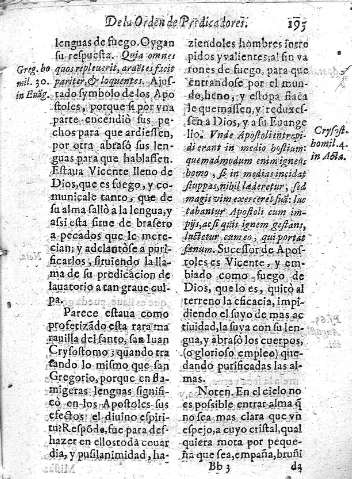 De la Orden de Predicadores.
195
lenguas de fuego. Oygan
su respuesta. Quia omnes
quos repleuerit, ardētes fecit
pariter, & loquentes. Ajus-
tado symbolo de los Apos
stoles, porque si por vna
parte encendiò sus pe-
chos para que ardiessen,
por otra abrasò sus len
guas para que hablassen.
Estaua Vicente lleno de
Dios, que es fuego, y co-
municale tanto, que de
su alma salliò a la lengua, y
assi esta sirue de brasero
a pecados que le mere-
cian; y adelantose a puri-
ficarlos, siruiendo la lla-
ma de su predicacion de
lauatorio a tan graue cul-
pa.
Parece estaua como
profetizado esta rara ma
rauilla del santo, san Iuan
Crysostomo; quando tra
tando lo mismo que san
Gregorio, porque en fla-
migeras lenguas signifi
cò en los Apostoles sus
efectos el diuino espiri-
tu? Respõde, fue para des-
hazer en ellos toda couar
dia, y pusilanimidad, ha-
Greg. ho
mil. 30.
in Euāg.
ziendoles hombres intre
pidos y valientes; al sin va
rones de fuego, para que
entrandose por el mun-
do, heno, y estopa flaca
le quemassen, y reduxes-
sen a Dios, y a su Euange
llo. Vnde Apostoli intrepi-
di erant in medio hostium:
quemadmodum enim igneus
homo, si in medias incidat
stuppas, nihil læderetur, sed
magis vim exerceret suã: luc
tabantur Apostoli cum im-
pijs, ac si quis ignem gestans,
luctetur cum eo, qui portat
fænum. Successor de Apos-
toles es Vicente, y em-
biado como fuego de
Dios, que lo es, quitò al
terreno la eficacia, impi-
diendo el suyo de mas ac
tiuidad, la suya con su len
gua, y abrasò los cuerpos,
(o glorioso empleo) que-
dando purificadas las al-
mas.
Noten. En el cielo no
es possible entrar alma q̃
no sea mas clara que vn
espejo, a cuyo cristal, qual
quiera mota por peque-
ña que sea, empaña, bruñi
Crysost.
homil. 4.
in Acta.
Bb 3
da